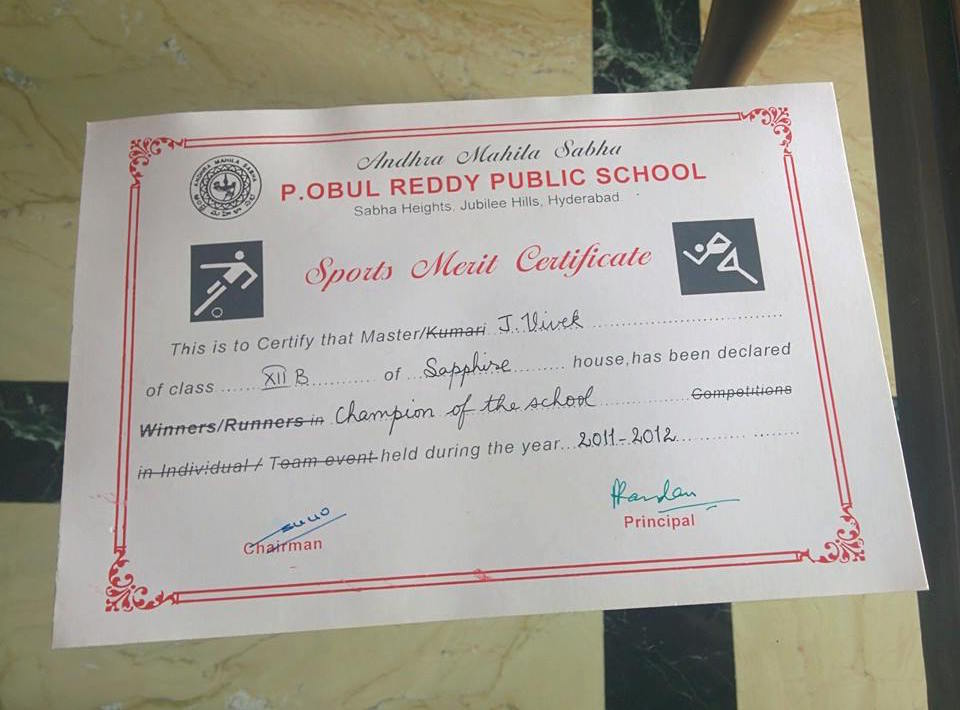 Andhra Mahila Sabha
P.OBUL REDDY PUBLIC SCHOOL
Sabha Heights, Jubilee Hills, Hyderabad
Sports Merit Certificate
This is to Certify that Master/Kumari J. Vivek
of class XII B of Sapphire house,has been declared
Winners/Runners in Champion of the school Competitions
in Individual / Team event held during the year 2011-2012
Chairman
Principal